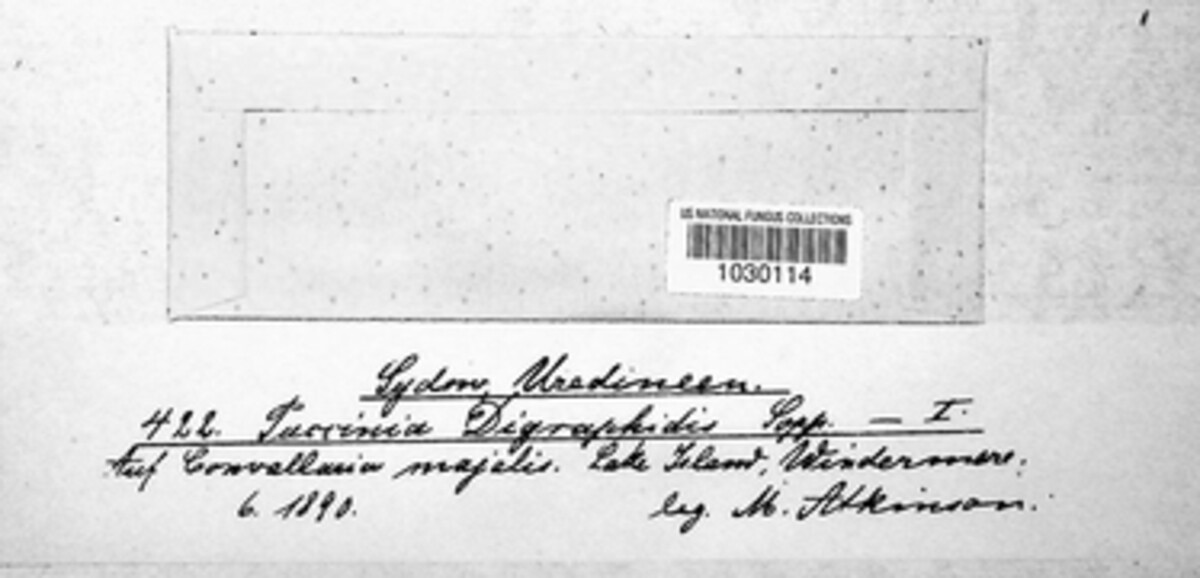 US NATIONAL FUNGUS COLLECTIONS
1030114
Sydow, Uredineen.
422. Puccinia Digraphidis Sopp. — I.
Auf Convallaria majalis. Lake Island, Windermere.
6. 1890. leg. M. Atkinson.